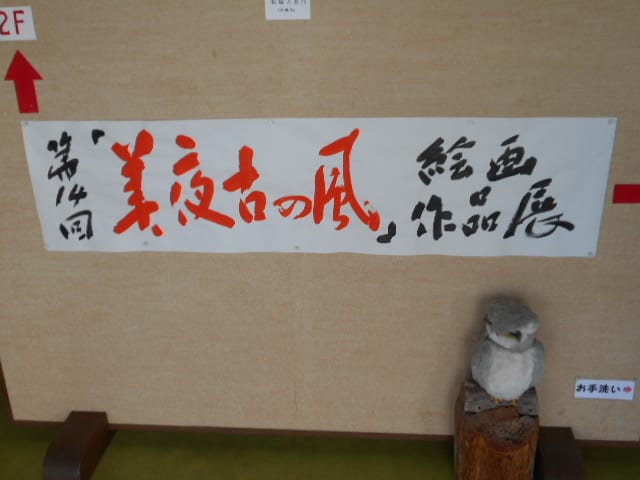 2F
第14回
「美夜古の風」
絵画
作品展
お手洗い⇨